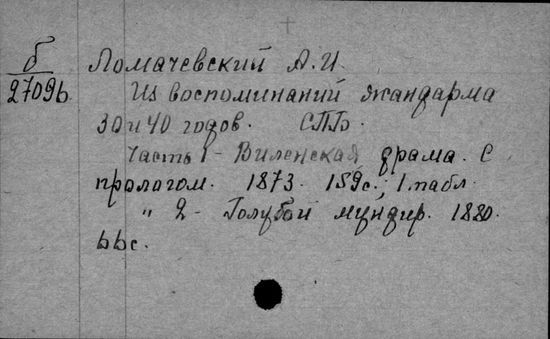 б Ломачевский А.И.
27096 Из воспоминаний жандарма
30 и 40 годов. СПб.
Часть 1 - Виленская драма. С
прологом. 1873. 159с.; 1.табл.
" 2 - Голубой мундир. 1880.
66с.